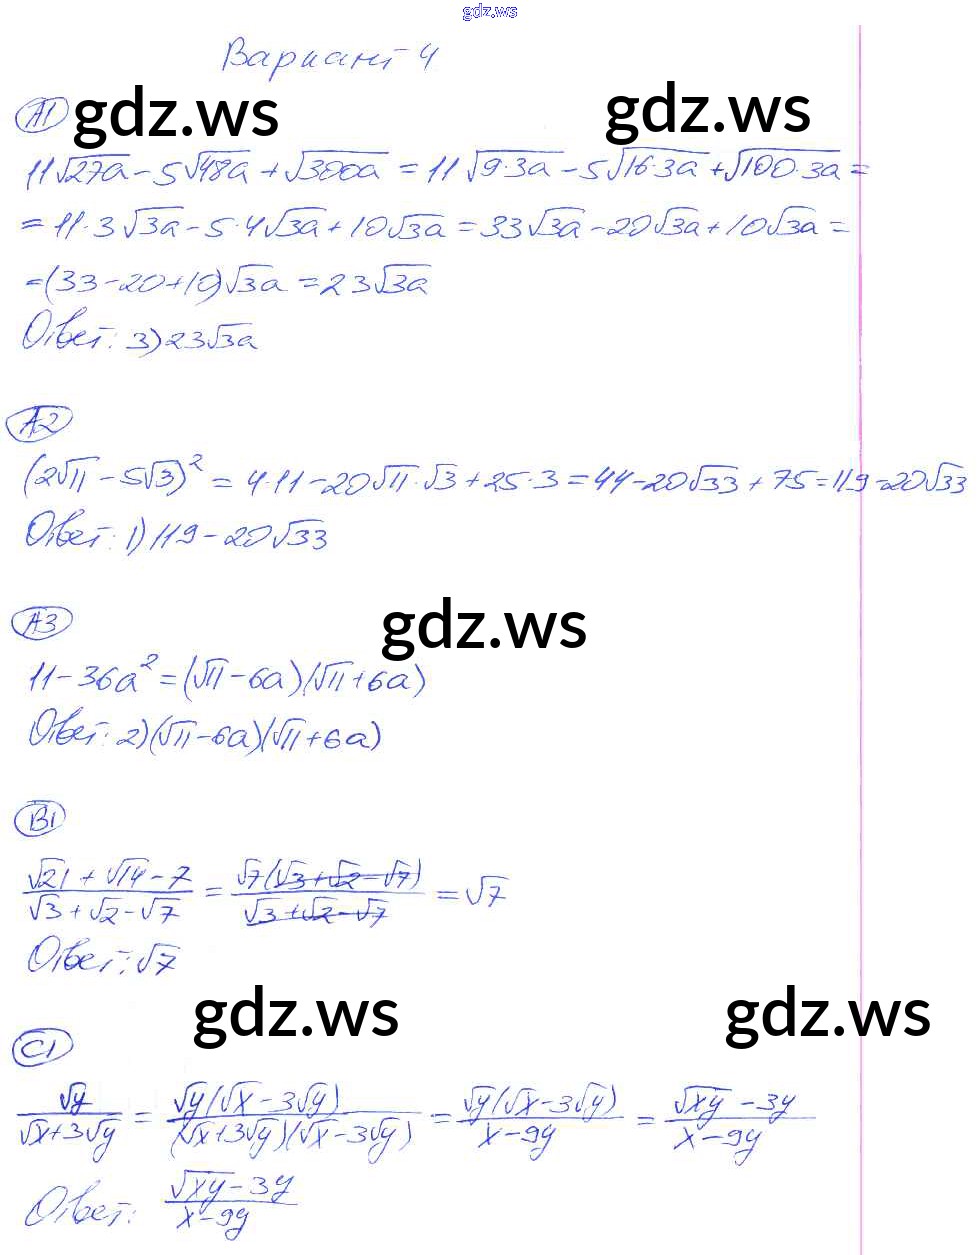 gdz.ws
Вариант 4
A1
gdz.ws gdz.ws
11√27a - 5√48a + √300a = 11√9·3a - 5√16·3a + √100·3a =
= 11·3√3a - 5·4√3a + 10√3a = 33√3a - 20√3a + 10√3a =
= (33 - 20 + 10)√3a = 23√3a
Ответ: 3) 23√3a
A2
(2√11 - 5√3)² = 4·11 - 20√11·√3 + 25·3 = 44 - 20√33 + 75 = 119 - 20√33
Ответ: 1) 119 - 20√33
A3
gdz.ws
11 - 36a² = (√11 - 6a)(√11 + 6a)
Ответ: 2) (√11 - 6a)(√11 + 6a)
B1
(√21 + √14 - 7)/(√3 + √2 - √7) = √7(√3 + √2 - √7)/(√3 + √2 - √7) = √7
Ответ: √7
gdz.ws gdz.ws
C1
√y/(√x + 3√y) = √y(√x - 3√y)/((√x + 3√y)(√x - 3√y)) = √y(√x - 3√y)/(x - 9y) = (√xy - 3y)/(x - 9y)
Ответ: (√xy - 3y)/(x - 9y)